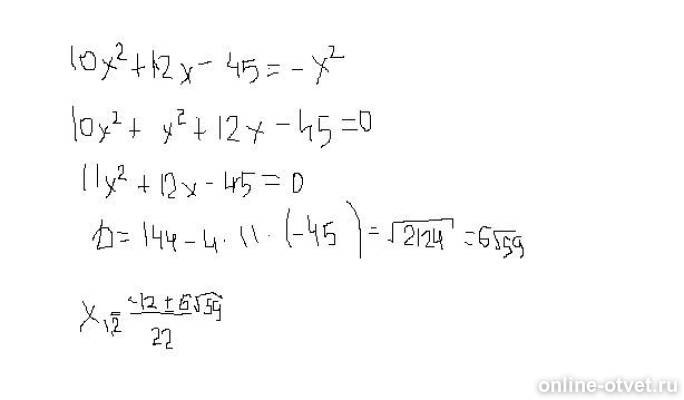 10x²+12x-45=-x²
10x²+ x²+12x-45=0
11x²+12x-45=0
D=144-4·11·(-45)=√2124=6√59
x₁,₂=(-12±6√59)/22
online-otvet.ru